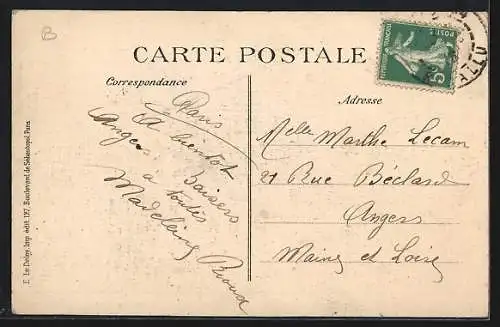 CARTE POSTALE
Correspondance
Paris
A bientôt
Angers. Baisers
à toutes
Madeleine
Adresse
Melle Marthe Lecam
21 Rue Béclard
Angers
Maine et Loire
E. Le Deley, Imp.-édit. 127, Boulevard de Sébastopol, Paris
REPUBLIQUE FRANÇAISE
POSTES
5c
B